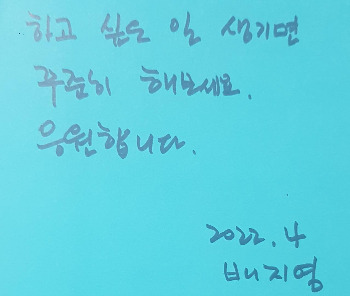 하고 싶은 일 생기면
꾸준히 해보세요.
응원합니다.
2022.4
배지영